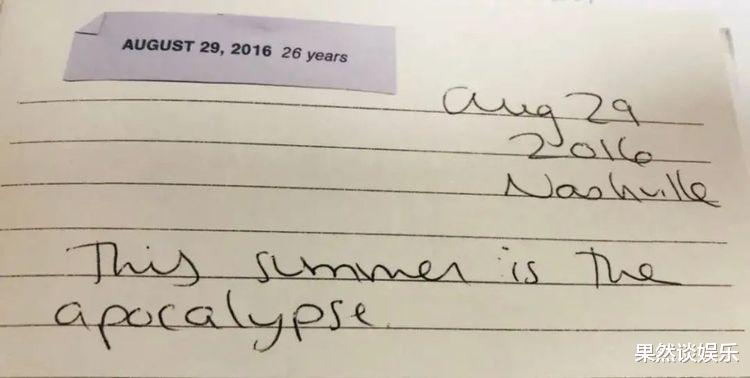 AUGUST 29, 2016 26 years
Aug 29
2016
Nashville
This summer is the
apocalypse.
果然谈娱乐